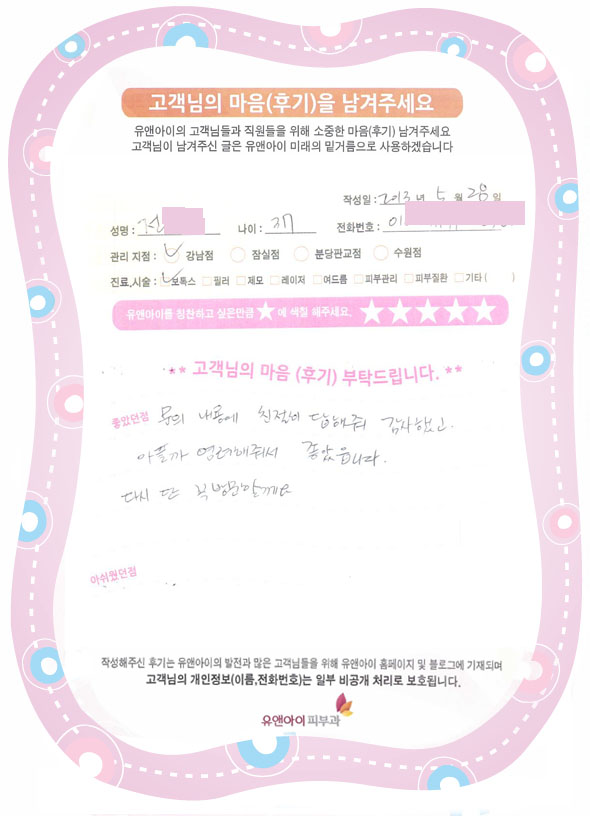 고객님의 마음(후기)을 남겨주세요
유앤아이의 고객님들과 직원들을 위해 소중한 마음(후기) 남겨주세요
고객님이 남겨주신 글은 유앤아이 미래의 밑거름으로 사용하겠습니다
작성일 : 2013 년 5 월 일
성명 : 전 나이 : 전화번호 : 01
관리 지점 : 강남점 잠실점 분당판교점 수원점
진료,시술 : 보톡스 필러 제모 레이저 여드름 피부관리 피부질환 기타 ( )
유앤아이를 칭찬하고 싶은만큼 ★ 에 색칠 해주세요. ★★★★★
** 고객님의 마음 (후기) 부탁드립니다. **
좋았던점 문의 내용에 친절히 답해줘 감사했고.
아플까 염려해줘서 좋았습니다.
다시 또 꼭 방문할께요
아쉬웠던점
작성해주신 후기는 유앤아이의 발전과 많은 고객님들을 위해 유앤아이 홈페이지 및 블로그에 기재되며
고객님의 개인정보(이름,전화번호)는 일부 비공개 처리로 보호됩니다.
유앤아이피부과